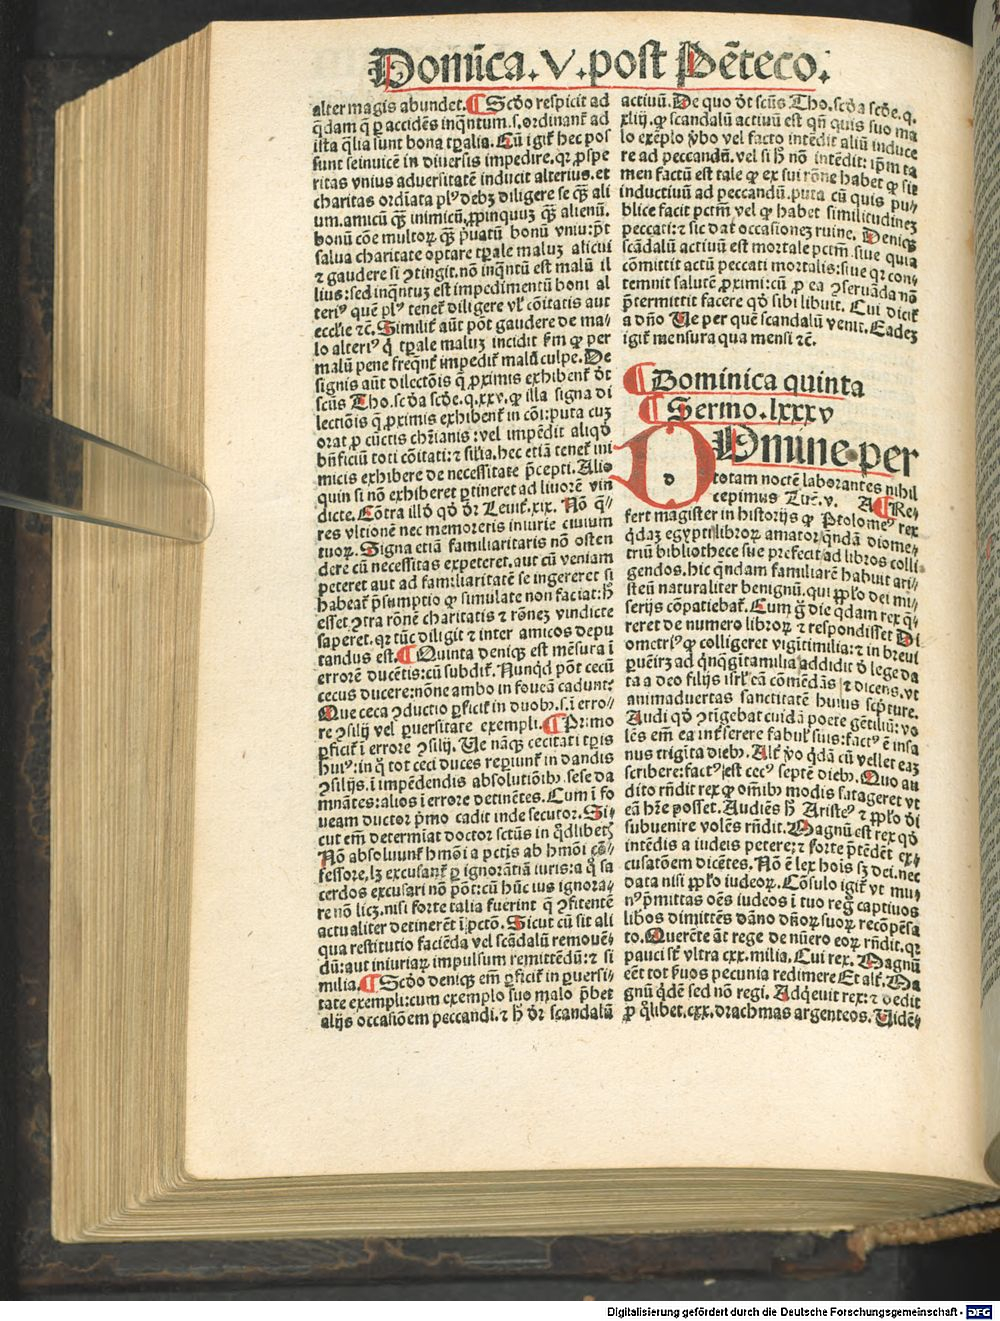 Domīca. V. post Pēteco.
alter magis abundet. ¶ Scd̄o respicit ad
q̄dam q̄ ꝑ accidēs inq̄ntum .s. ordinant᷑ ad
ista q̄lia sunt bona tꝑalia. Cū igit᷑ hec pos
sunt seinuicē in diuersis impedire. qꝛ ꝓspe
ritas vnius aduersitatē inducit alterius. et
charitas ordīata plꝰ debꝫ diligere se q̄ꝫ ali
um. amicū q̄ꝫ inimicū, ꝓpinquuꝫ q̄ꝫ alienū.
bonū cōe multoꝝ q̄ꝫ p̄uatū bonū vniꝰ: p̄t
salua charitate optare tꝑale maluꝫ alicui
⁊ gaudere si ꝯtingit. nō inq̄ntū est malū il
lius: sed inq̄ntuꝫ est impedimentū boni al
teriꝰ quē plꝰ tenet᷑ diligere vl̓ cōitatis aut
eccl̓ie ⁊c̄. Similit᷑ aūt pōt gaudere de ma-
lo alteriꝰ q̓ tꝑale maluꝫ incidit ẜm ꝙ per
malū pene freq̄nt᷑ impedit᷑ malū culpe. De
signis aūt dilectōis q̄ ꝓximis exhibent᷑ ōt
scūs Tho. scd̄a scd̄e. q. xxv. ꝙ illa signa di
lectiōis q̄ ꝓximis exhibent᷑ in cōi: puta cuꝫ
orat᷑ ꝓ cūctis chr̄ianis: vel impēdit aliqd̓
bn̄ficiū toti cōitati: ⁊ sil̓ia. hec etiā tenet᷑ ini
micis exhibere de necessitate p̄cepti. Alio
quin si nō exhiberet ꝑtineret ad liuorē vin
dicte. Cōtra illd̓ qd̓ dr̄ Leuit᷑. xix. Nō q̄-
res vltionē nec memoreris iniurie ciuium
tuoꝝ. Signa etiā familiaritatis nō osten
dere cū necessitas expeteret. aut cū veniam
peteret aut ad familiaritatē se ingereret si
habeat᷑ p̄sumptio ꝙ simulate non faciat: h̄
esset ꝯtra rōnē charitatis ⁊ rōneꝫ vindicte
saperet. qꝛ tūc diligit᷑ inter amicos depu
tandus est. ¶ Quinta deniqꝫ est mēsura ī
errorē ducētis: cū subdit᷑. Nunqd̓ pōt cecū
cecus ducere: nōne ambo in foueā cadunt:
Que ceca ꝯductio ꝑficit᷑ in duobꝫ. s. ī erro/
re ꝯsilij vel ꝑuersitate exempli. ¶ Primo
ꝑficit᷑ ī errore ꝯsilij. Ue nāqꝫ cecitati tꝑis
huiꝰ: in q̓ tot ceci duces reꝑiunt᷑ in dandis
ꝯsilijs. ī impēdendis absolutiōibꝫ. sese da
mnātes: alios ī errore detinētes. Cum ī fo
ueam ductor p̄mo cadit inde secutor. Si-
cut em̄ determīat doctor sctūs in q̓dlibetꝫ
Nō absoluunt᷑ hmōi a pctīs ab hmōi cō-
fessore, lꝫ excusant᷑ ꝑ ignorātiā iuris: a q̓ sa
cerdos excusari nō pōt: cū hūc ius ignora-
re nō liceꝫ. nisi forte talia fuerint q̄ ꝯfitentē
actualiter detinerēt ī pctō. Sicut cū sit ali
qua restitutio faciēda vel scādalū remouē-
dū: aut iniuriaꝝ impulsum remittēdū: ⁊ si
milia. ¶ Scd̄o deniqꝫ em̄ ꝑficit᷑ in ꝑuersi-
tate exempli: cum exemplo suo malo p̄bet
alijs occasiōem peccandi. ⁊ h̄ dr̄ scandalū
actiuū. De quo ōt scūs Tho. scd̄a scd̄e. q.
xliij. ꝙ scandalū actiuū est qn̄ quis suo ma
lo exēplo v̓bo vel facto intēdit aliū induce
re ad peccandū. vel si h̄ nō intēdit: ip̄m ta
men factū est tale ꝙ ex sui rōne habet ꝙ sit
inductiuū ad peccandū. puta cū quis pu-
blice facit pctm̄ vel ꝙ habet similitudineꝫ
peccati: ⁊ sic dat occasioneꝫ ruine. Deniqꝫ
scādalū actiuū est mortale pctm̄. siue quia
cōmittit actū peccati mortalis: siue qꝛ con-
temnit salutē ꝓximi: cū ꝓ ea ꝯseruāda nō
p̄termittit facere qd̓ sibi libuit. Cui dicit᷑
a dn̄o Ue per quē scandalū venit. Eadeꝫ
igit᷑ mensura qua mensi ⁊c̄.
¶ Dominica quinta
¶ Sermo. lxxxv
Omine per
totam noctē laborantes nihil
cepimus Luc̄. v. A ¶ Re-
fert magister in historijs ꝙ Ptolomeꝰ rex
q̓daꝫ egypti libroꝝ amator q̄ndā diome-
triū bibliothece sue prefecit ad libros colli
gendos. hic q̄ndam familiarē habuit ari-
steū naturaliter benignū. qui ꝓpl̓o dei mi-
serijs cōpatiebat᷑. Cum ḡ die q̓dam rex q̄-
reret de numero libroꝝ ⁊ respondisset Di
ometriꝰ ꝙ colligeret vigīti milia: ⁊ in breui
ꝑuēirꝫ ad q̓nq̄gīta milia addidit d̓ lege da
ta a deo filijs isrl̓ eā cōmēdās ⁊ dicens. vt
animaduertas sanctitatē huius scp̄ture.
Audi qd̓ ꝯtīgebat cuidā poete gētiliū: vo
lēs em̄ ea int᷑serere fabul̓ suis: factꝰ ē insa
nus trigīta diebꝫ. Alt᷑ v̓o q̓dā cū vellet eaꝫ
scribere: factꝰ est cecꝰ septē diebꝫ. Quo au
dito rn̄dit rex ꝙ om̄ibꝫ modis satageret vt
eā hr̄e posset. Audiēs h̄ Aristeꝰ ⁊ ꝓpl̓o d̓i
subuenire volēs rn̄dit. Magnū est rex qd̓
intēdis a iudeis petere: ⁊ forte p̄tēdēt ex-
cusatōem dicētes. Nō ē lex hois sꝫ dei. nec
data nisi ꝓpl̓o iudeoꝝ. Cōsulo igit᷑ vt mu-
nꝰ p̄mittas oēs iudeos ī tuo regꝰ captiuos
libos dimittēs dāno dn̄oꝝ suoꝝ recōpēsa
to. Querēte āt rege de nūero eoꝝ rn̄dit. qꝛ
pauci st᷑ vltra cxx. milia. Cui rex. Magnū
eēt tot ẜuos pecunia redimere Et alt᷑. Ma
gnū q̓dē sed nō regi. Adq̓euit rex: ⁊ dedit
ꝓ q̓libet. cxx. drachmas argenteos. Uidē-
Digitalisierung gefördert durch die Deutsche Forschungsgemeinschaft - DFG